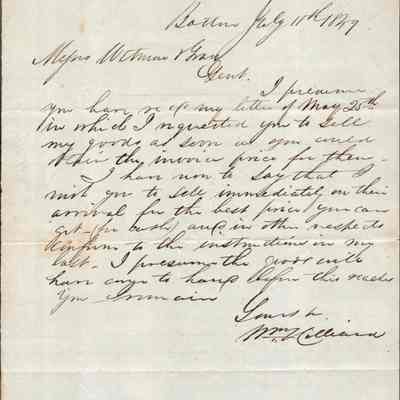 Boston July 11th 1849
Messrs Wetmore &
Gent.
I presume
you have recd my letter of May 25th
in which I requested you to sell
my goods as soon as you could
obtain the invoice price for them.
I have now to say that I
wish you to sell immediately on their
arrival for the best price you can
get (for cash) and in other respects
conform to the instructions in my
last. I presume the goods will
have come to hand before this reaches
you I remain
Yours &c
Wm Hilliard